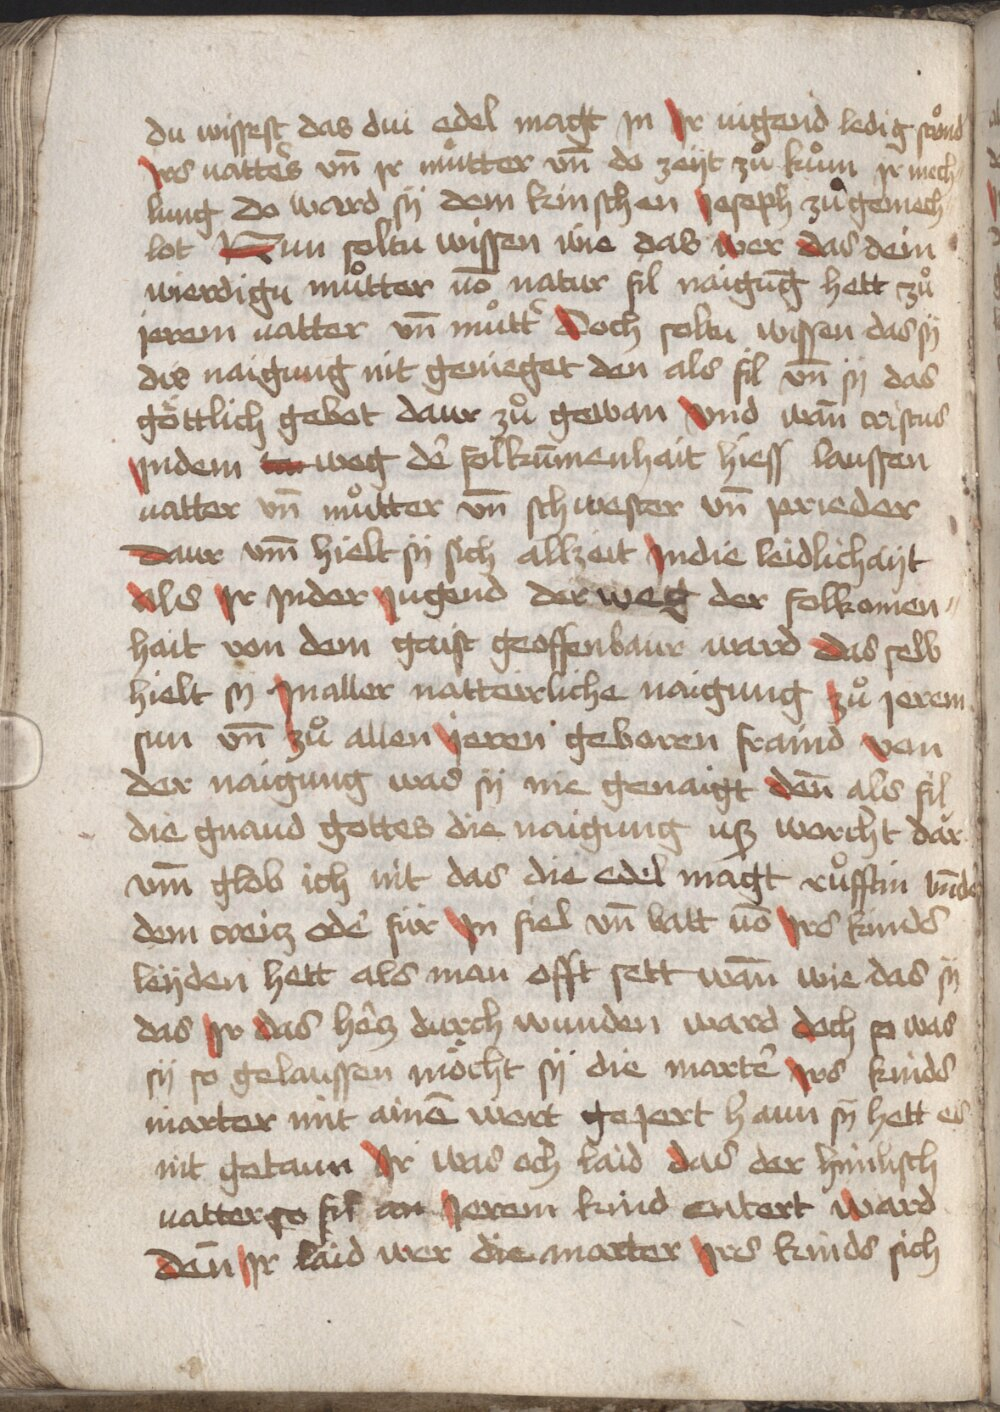 du wissest das dui edel magt jn jr iugend ledig stůnd
jrs vatters vn̄ jr můtter vn̄ do zeyt zů kům jr mech
lung do ward sÿ dem keinschen joseph zů gemech
lot Nun soltu wissen wie das wer das dein
wierdigu můtter vō natur fil naigūg hett zů
jerem vatter vn̄ můtt̄ Doch soltu wissen das sÿ
die naigung nit genieget den als fil vn̄ sÿ das
göttlich gebot daur zů gewan Vnd wan̄ cristus
jndem weg de᷑ folkūmenhait hiess laussen
vatter vn̄ můtter vn̄ schwester vn̄ prieder
Daur vm̄ hielt sÿ sich allzeit jndie leidlichayt
als jr jnder jugend der weg der folkomen〃
hait von dem gaist geoffenbaur ward das selb
hielt sÿ jnaller natteirliche naigung zů jerem
sun vn̄ zů allen jeren geboren fraind von
der naigung was sÿ nie genaigt den̄ als fil
die gnaud gottes die naigung uß worcht dar
vm̄ glob ich nit das die edel magt růfftin vnde᷑
dem creicz ode᷑ für jn fiel vn̄ batt vō jrs kinds
leyden hett als man offt sett wan̄ wie das sÿ
das jr das he᷑cz durch wunden ward doch so was
sÿ so gelaussen möcht sÿ die marte᷑ jrs kinds
marter mit ainē wort gejert haun sÿ hett es
nit getaun jr was och laid das der himlisch
vatter so fil an jerem kind entert ward
den̄ jr laid wer die marter jrs kinds sich